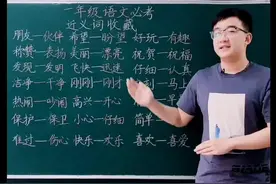 一年级语文必考
近义词收藏
朋友—伙伴 希望—盼望 好玩—有趣
称赞—表扬 美丽—漂亮 祝贺—祝福
发现—发明 飞快—迅速 仔细—认真
洁净—干净 刚刚—刚才 马上
热闹—吵闹 高兴—开心 简单
保护—保卫 小心—仔细 简单
难过—伤心 快乐—欢乐 喜欢—喜爱